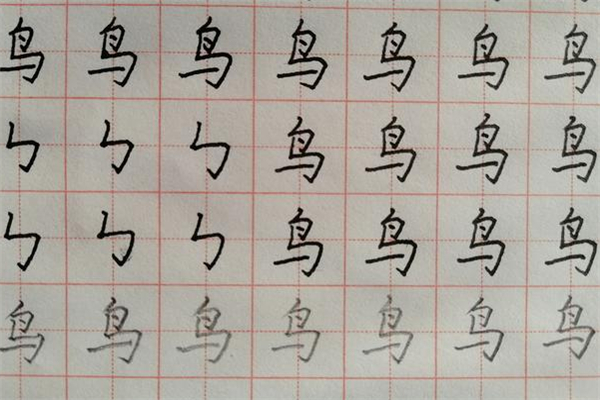 鸟 鸟 鸟 鸟 鸟 鸟 鸟
ㄣ ㄣ ㄣ 鸟 鸟 鸟 鸟
ㄣ ㄣ ㄣ 鸟 鸟 鸟 鸟
鸟 鸟 鸟 鸟 鸟 鸟 鸟